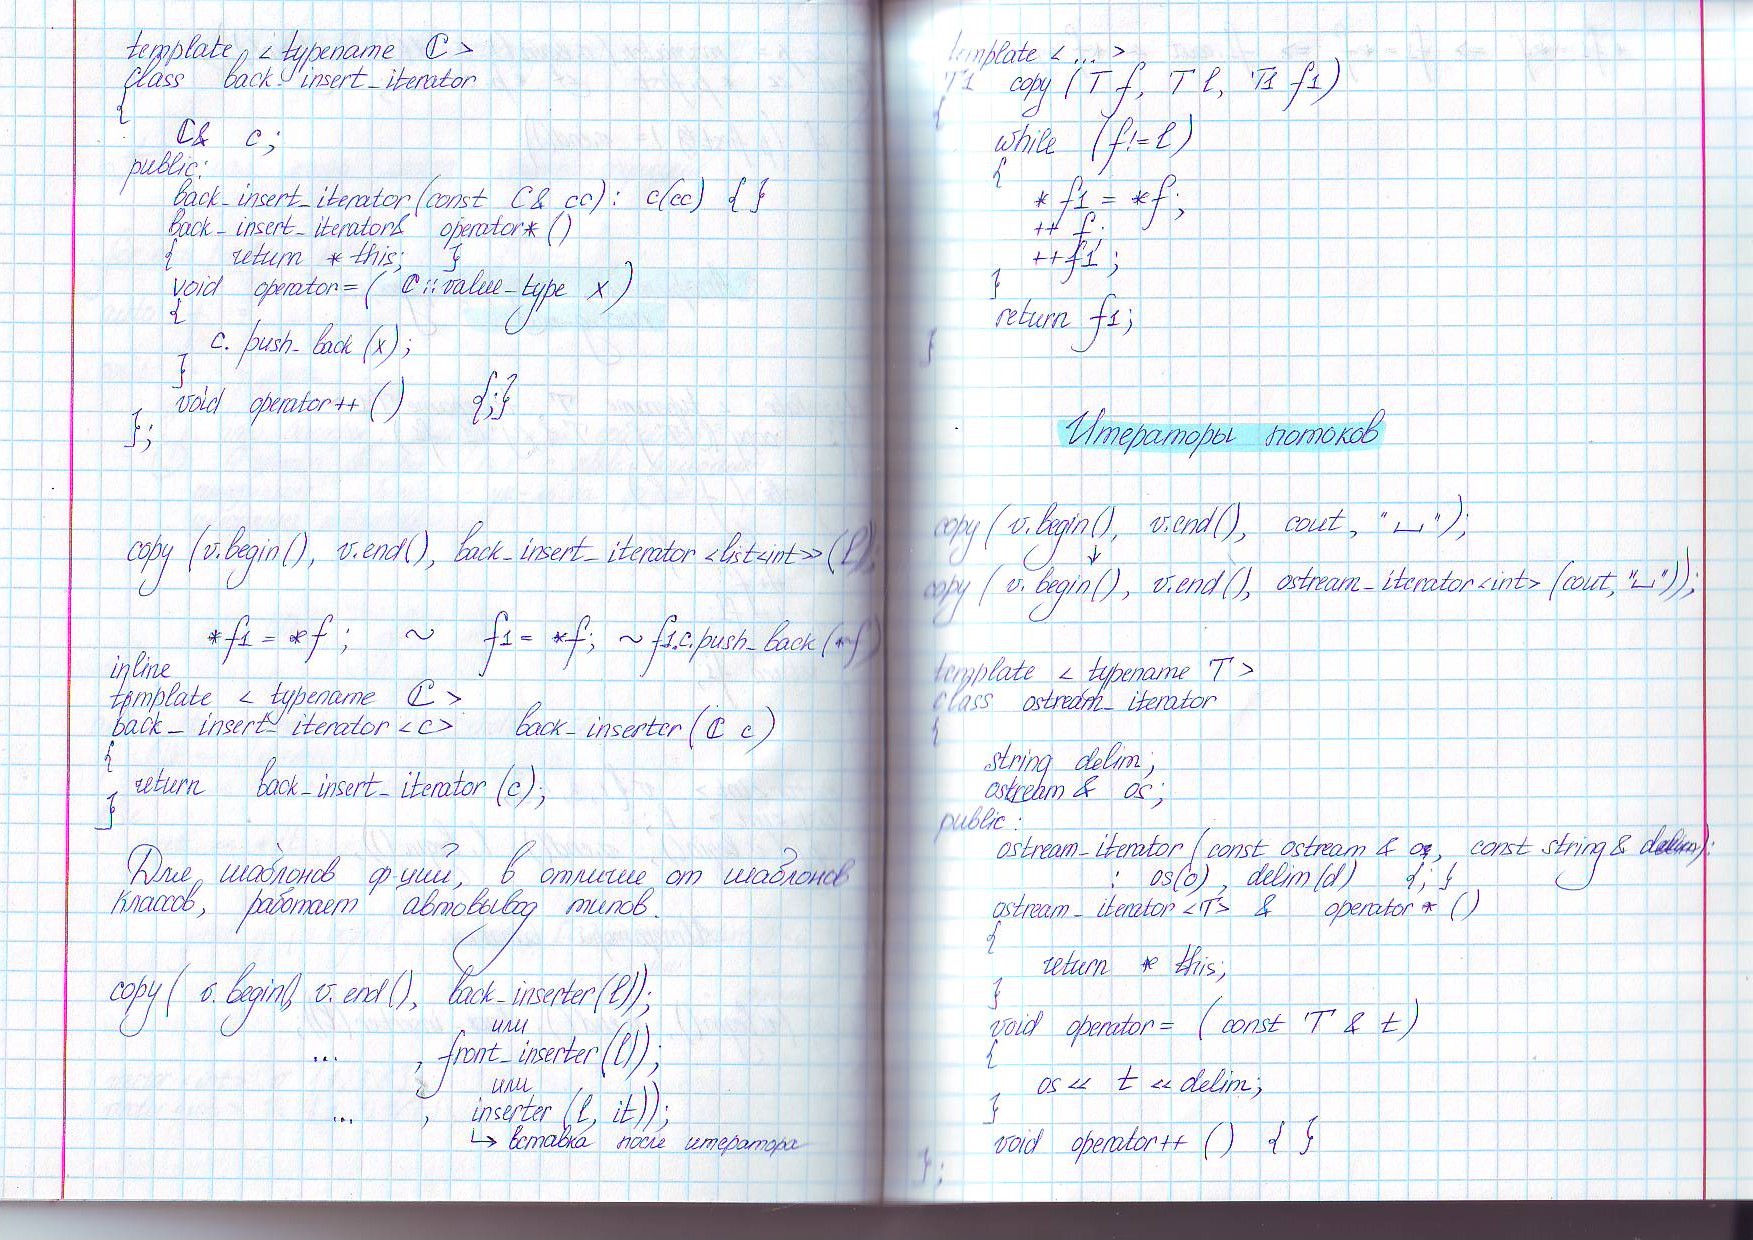 template <typename C>
class back_insert_iterator
{
C& c;
public:
back_insert_iterator(const C& cc): c(cc) { }
back_insert_iterator& operator*()
{ return *this; }
void operator=( C::value_type x)
{
c. push_back (x);
}
void operator++ () {;}
};
copy (v.begin(), v.end(), back_insert_iterator <list<int>> (l);
*f1 = *f ; ~ f1 = *f; ~ f1.c.push_back (*f)
inline
template < typename C >
back_insert_iterator <c> back_inserter (C c)
{
return back_insert_iterator (c);
}
Для шаблонов ф-ций, в отличие от шаблонов
классов, работает автовывод типов.
copy ( v.begin(), v.end(), back_inserter(l));
или
... , front_inserter(l));
или
... , inserter (l, it));
↳ вставка после итератора
template < ... >
T1 copy (T f, T l, T1 f1)
{
while (f!=l)
{
* f1 = *f;
++ f;
++f1 ;
}
return f1;
}
Итераторы потоков
copy ( v.begin(), v.end(), cout, "␣");
↓
copy ( v.begin(), v.end(), ostream_iterator<int> (cout,"␣"));
template < typename T >
class ostream_iterator
{
string delim;
ostream & os;
public:
ostream_iterator (const ostream & o, const string & delim):
: os(o), delim(d) {; }
ostream_iterator <T> & operator * ()
{
return * this;
}
void operator= (const T & t)
{
os << t << delim;
}
void operator++ () { }
};